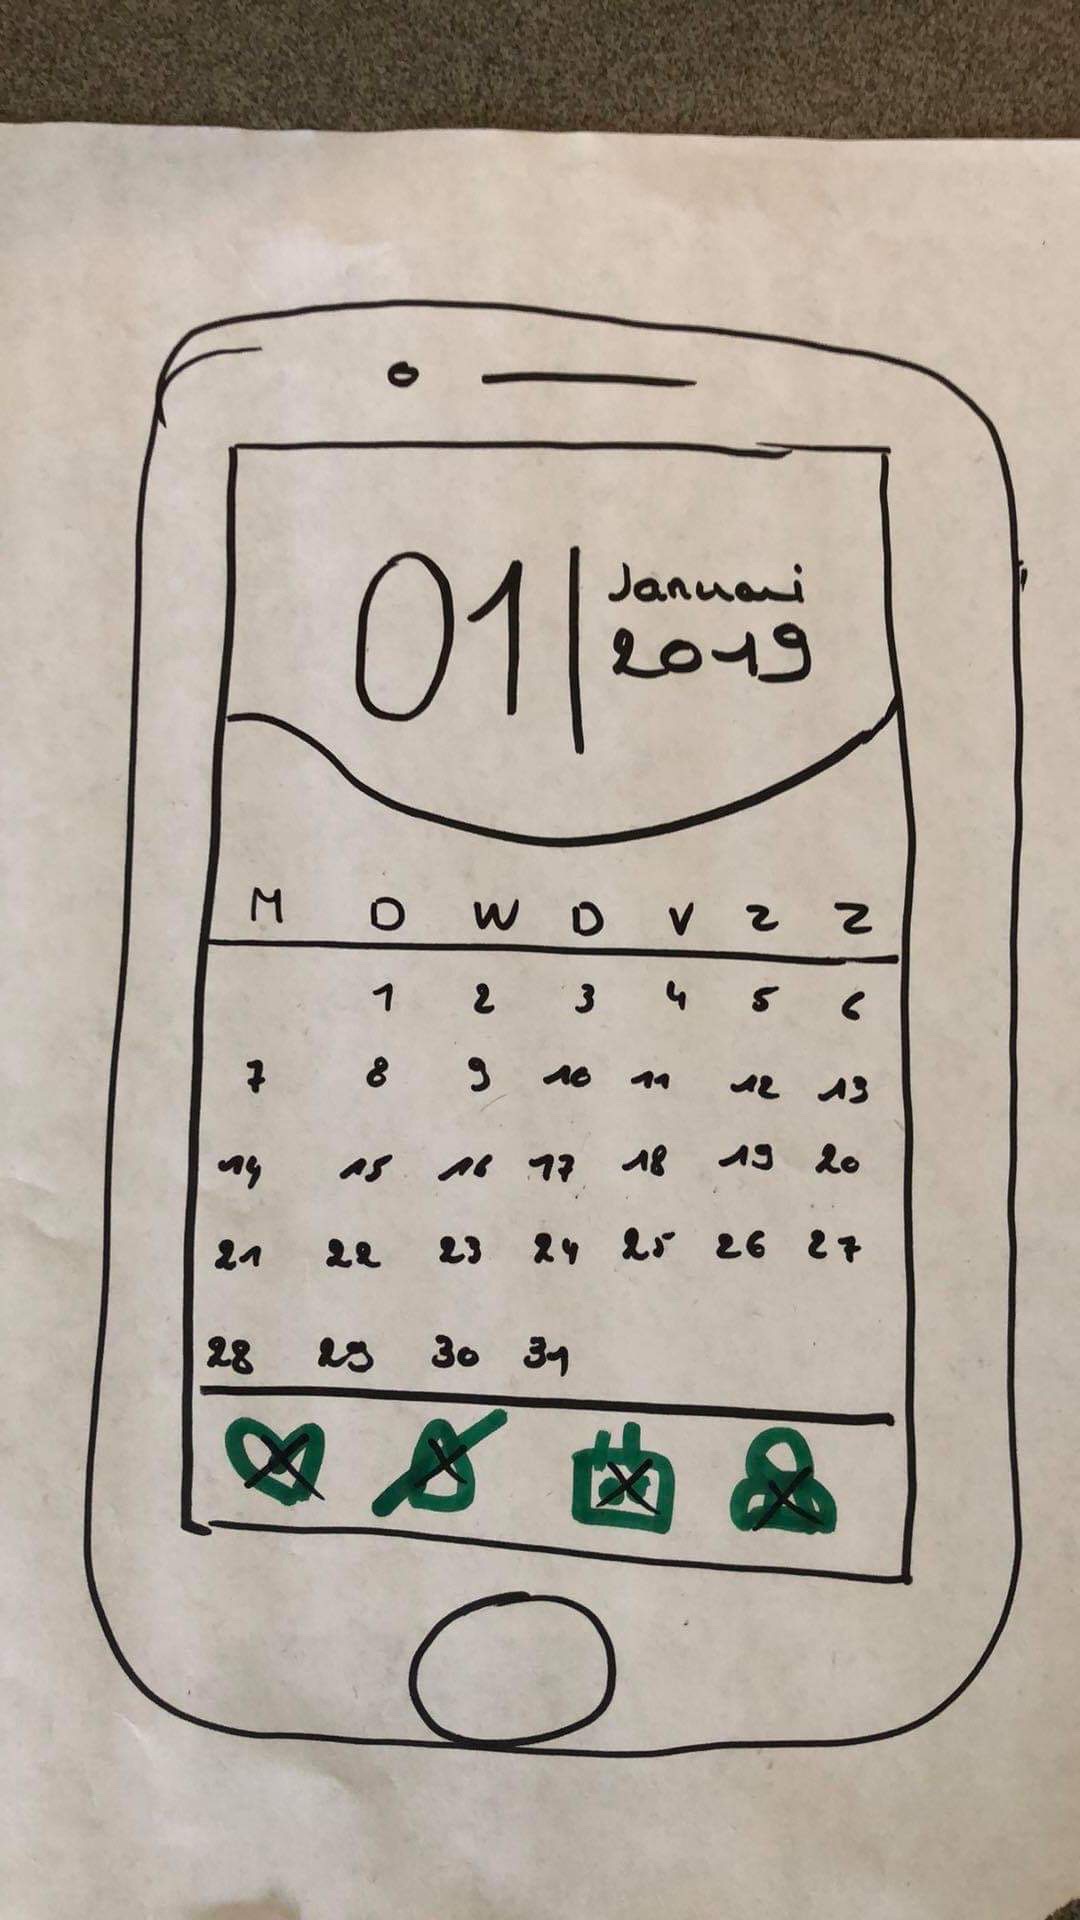 01
Januari
2019
M D W D V Z Z
1 2 3 4 5 6
7 8 9 10 11 12 13
14 15 16 17 18 19 20
21 22 23 24 25 26 27
28 29 30 31